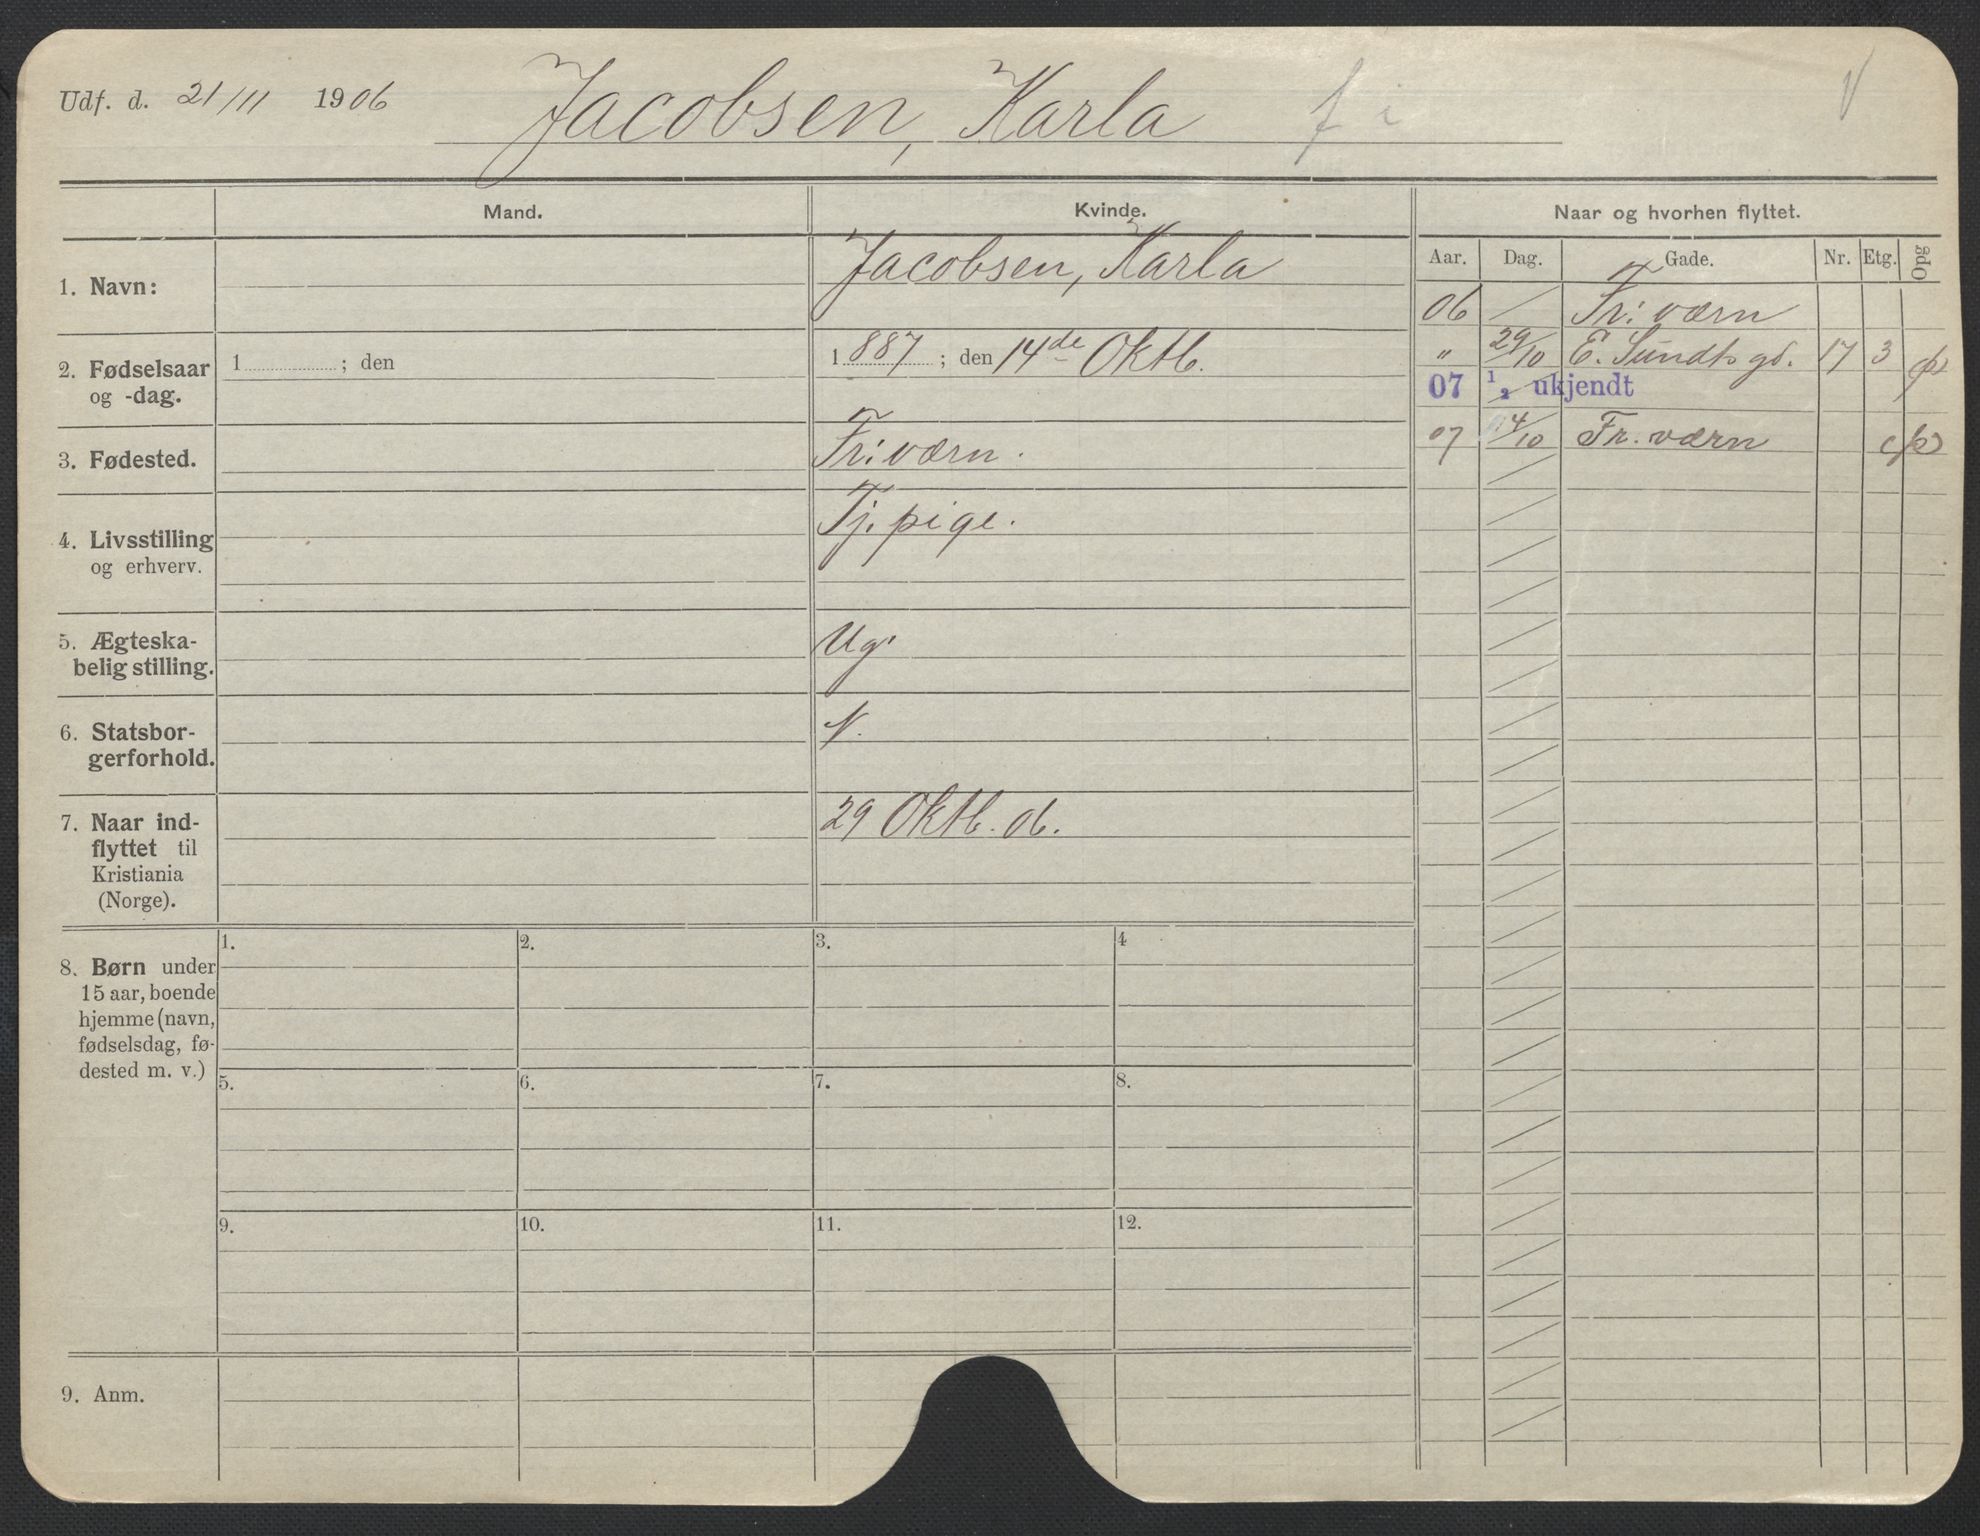 Udf. d. 21/11 1906 Jacobsen, Karla f i
Mand. Kvinde. Naar og hvorhen flyttet.
Aar. Dag. Gade. Nr. Etg. Opg
1. Navn: Jacobsen, Karla
2. Fødselsaar og -dag. 1 ; den 1887 ; den 14de Oktb.
3. Fødested. Fr: værn.
4. Livsstilling og erhverv. Tj. pige.
5. Ægteska-
belig stilling. Ug.
6. Statsbor-
gerforhold. N.
7. Naar ind-
flyttet til
Kristiania
(Norge). 29 Oktb. 06.
06 Fr: værn
" 29/10 E. Sundts gd. 17 3
07 1/2 ukjendt
07 14/10 Fr. værn
8. Børn under
15 aar, boende
hjemme (navn,
fødselsdag, fø-
dested m. v.)
1. 2. 3. 4
5. 6. 7. 8.
9. 10. 11. 12.
9. Anm.